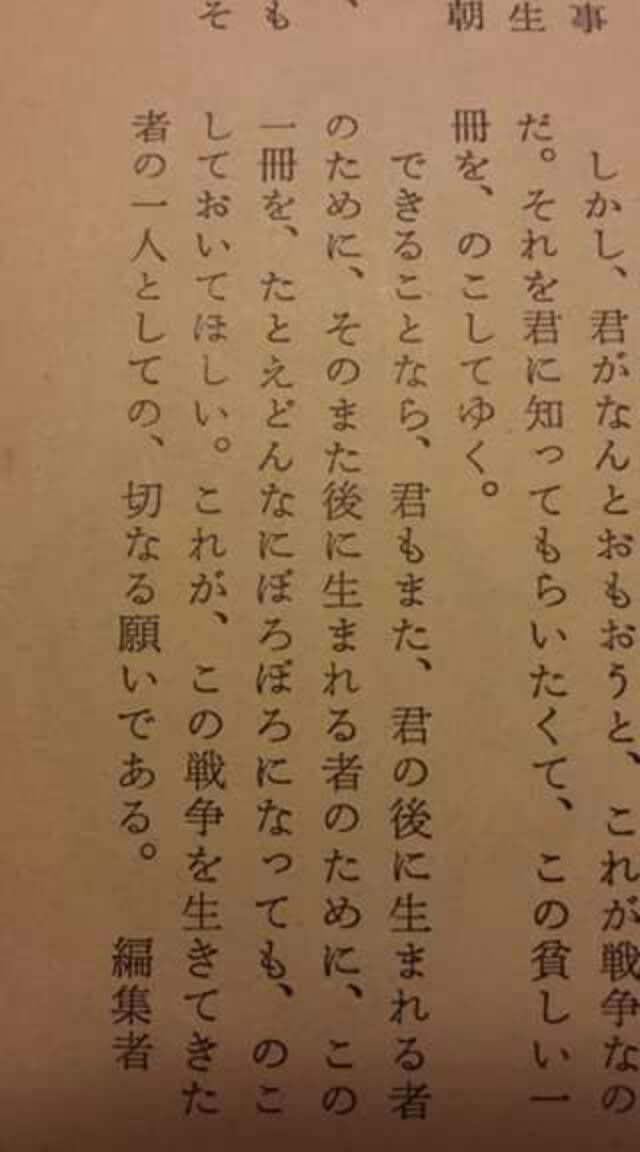 事
生
朝
、
も
そ
しかし、君がなんとおもおうと、これが戦争なの
だ。それを君に知ってもらいたくて、この貧しい一
冊を、のこしてゆく。
できることなら、君もまた、君の後に生まれる者
のために、そのまた後に生まれる者のために、この
一冊を、たとえどんなにぼろぼろになっても、のこ
しておいてほしい。これが、この戦争を生きてきた
者の一人としての、切なる願いである。　編集者